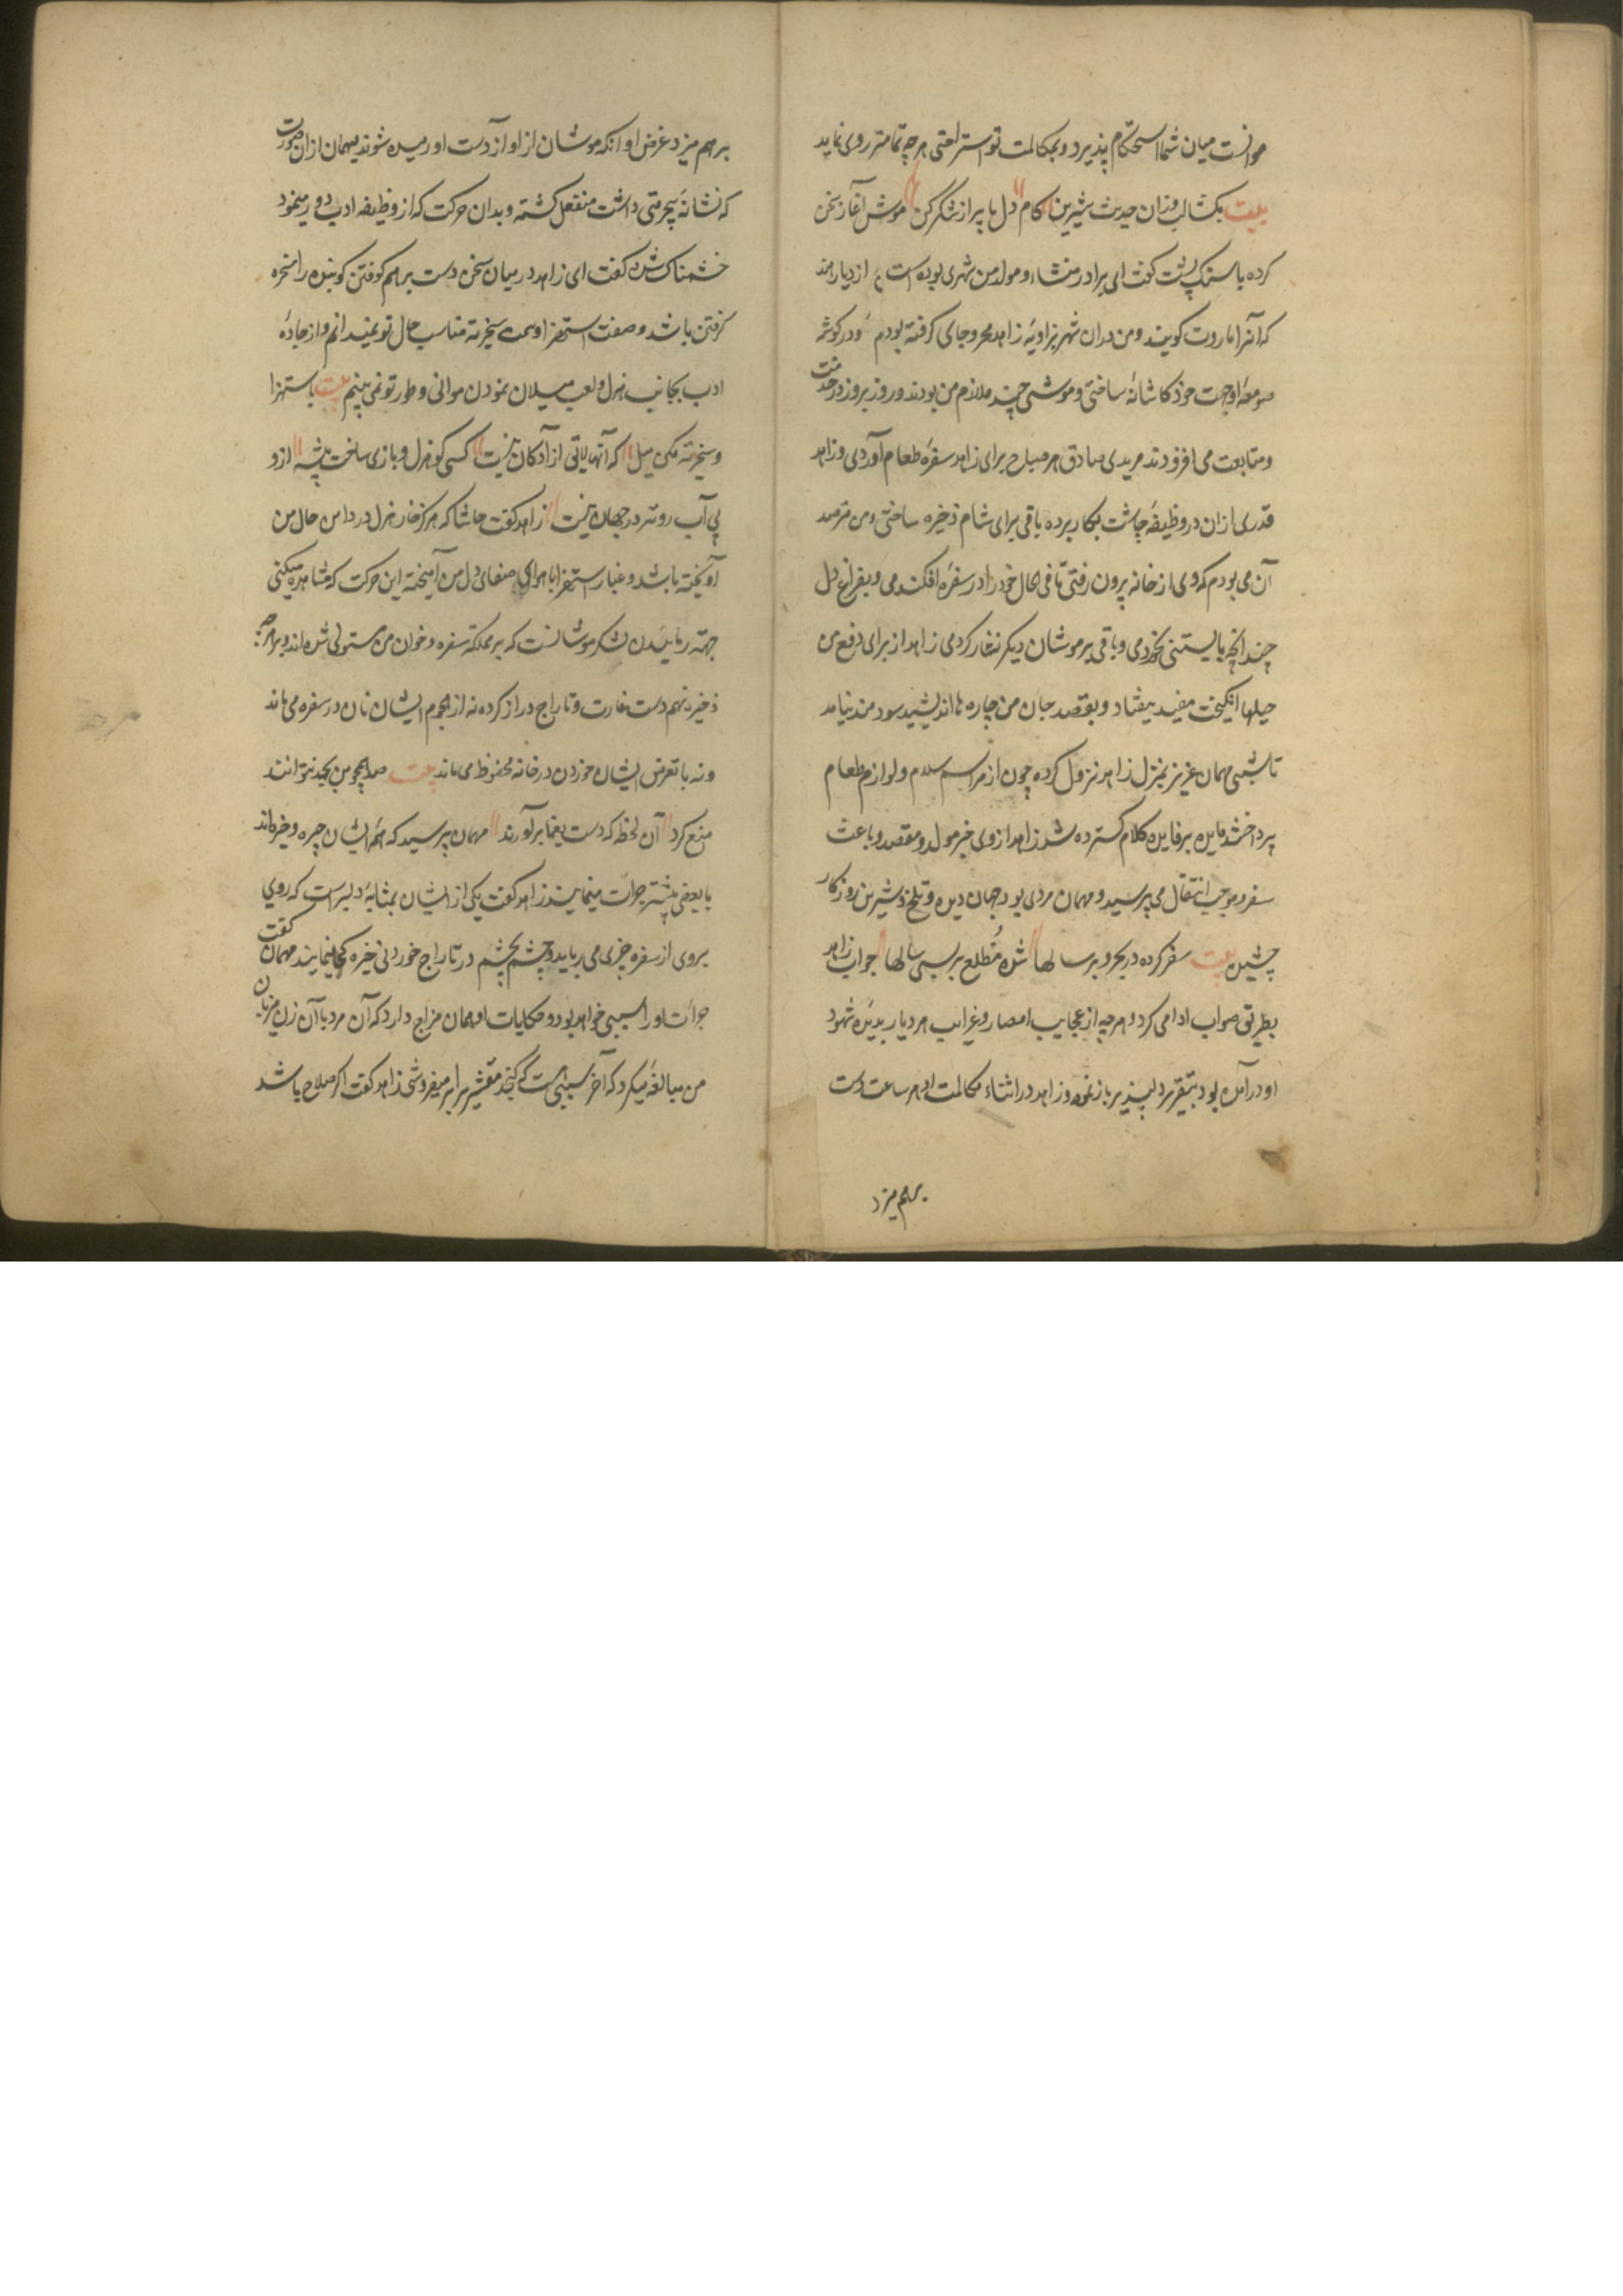 موانست میان شما استحکام پذیرد و بمکالمت تو استراحتی هر چه تمامتر روی نماید
بیت بکشا لب وزان حدیث شیرین کام دل ما پر از شکر کن موش آغاز سخن
کرده با سنک پشت کفت ای برادر منشاء و مولد من شهری بوده است از دیار هند
که آنرا ماروت کویند و من دران شهر بزاویهٔ زاهد مجرد جای کرفته بودم و در کوشه
صومعه او جهت خود کاشانهٔ ساختی و موشی چند ملازم من بودند و روز بروز در خدمت
و متابعت می افزودند مریدی صادق هر صباح برای زاهد سفرهٔ طعام آوردی و زاهد
قدری ازان در وظیفهٔ چاشت بکار برده باقی برای شام ذخیره ساختی و من مترصد
آن می بودم که وی از خانه بیرون رفتی تا فی الحال خود را در سفره افکندمی و بفراغ دل
چندانچه بایستنی بخوردمی و باقی بر موشان دیکر نثار کردمی زاهد از برای دفع من
حیلها انکیخت مفید نیفتاد و بقصد جان من چاره ها اندیشید سودمند نیامد
تا شبی مهمان عزیز بمنزل زاهد نزول کرده چون از مراسم سلام و لوازم طعام
پرداختند مایده پرفایده کلام کسترده شد زاهد از وی خبر مولد و مقصد و باعث
سفر و موجب انتقال می پرسید و مهمان مردی بود جهان دیده و تلخ و شیرین روزکار
چشیده بیت سفر کرده در بحر و بر سالها شده مُطلع بر بسی سالها جواب زاهد
بطریق صواب ادا می کرد و هر چه از عجایب امصار و غرایب هر دیار بدیدهٔ شهود
او درآمده بود بتقریر دلپذیر باز نموده و زاهد در اثناء مکالمت او هر ساعت دست
برهم میزد
برهم میزد غرض او آنکه موشان از اواز دست او رمیده شوند میهمان ازان صورت
که نشانهٔ بیحرمتی داشت منفعل کشته و بدان حرکت که از وظیفه ادب دور مینمود
خشمناک شده کفت ای زاهد در میان سخن دست برهم کوفتن کوینده را مسخره
کرفتن باشد و صفت استهزا و سمت سخریه مناسب حال تو نمیدانم و از جادهٔ
ادب بجانب هزل و لعب میلان نمودن موافق طور تو نمی بینم بیت باستهزا
و سخریه مکن میل که آنها لایق ازادکان نیست کسی کو هزل و بازی ساخت پیشه ازو
بی آب روتر در جهان نیست زاهد کفت حاشا که هرکز خار هزل در دامن حال من
آویخته باشد و غبار استهزا با هوای صفای دل من آمیخته این حرکت که مشاهده میکنی
جهته رمانیدن لشکر موشانست که بر مملکه سفره و خوان من مستولی شده اند و بر هرچه
ذخیره نهم دست غارت و تاراج دراز کرده نه از هجوم ایشان نان در سفره می ماند
و نه با تعرض ایشان خوردن در خانه محفوظ می ماند بیت صد همچو من بجد نتوانند
منع کرد آن لحظه که دست بیغما برآورند مهمان پرسید که همهٔ ایشان چیره و خیره اند
یا بعضی بیشتر جرأت مینمایند زاهد کفت یکی از ایشان بمثابهٔ دلیرست که روی
بروی از سفره چیزی می رباید و چشم بچشم در تاراج خوردنی خیره کی مینماید مهمان کفت
جرأت او را سببی خواهد بود و حکایات او همان مزاج دارد که آن مرد با آن زن میزبان
من مبالغه میکرد که آخر سببی هست که کنجد مقشر برابر میفروشی زاهد کفت اکر صلاح باشد